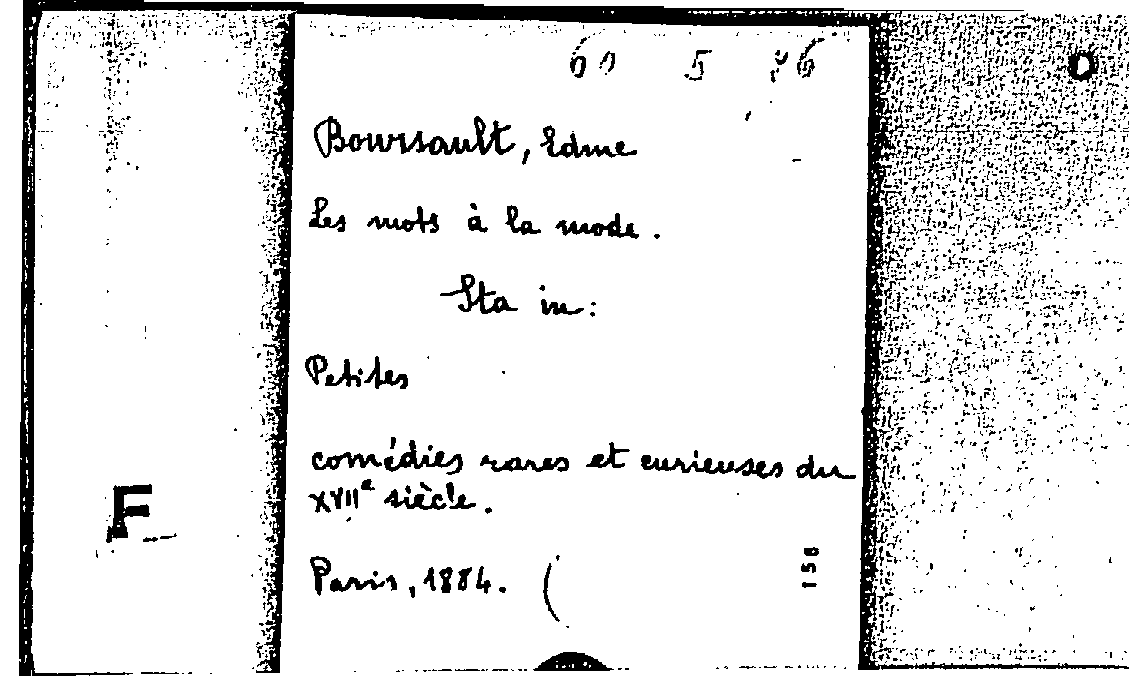 60 5 26
O
Boursault, Edme
Les mots à la mode.
Sta in:
Petites
comédies rares et curieuses du
XVIIe siècle.
F
Paris, 1884. (
158